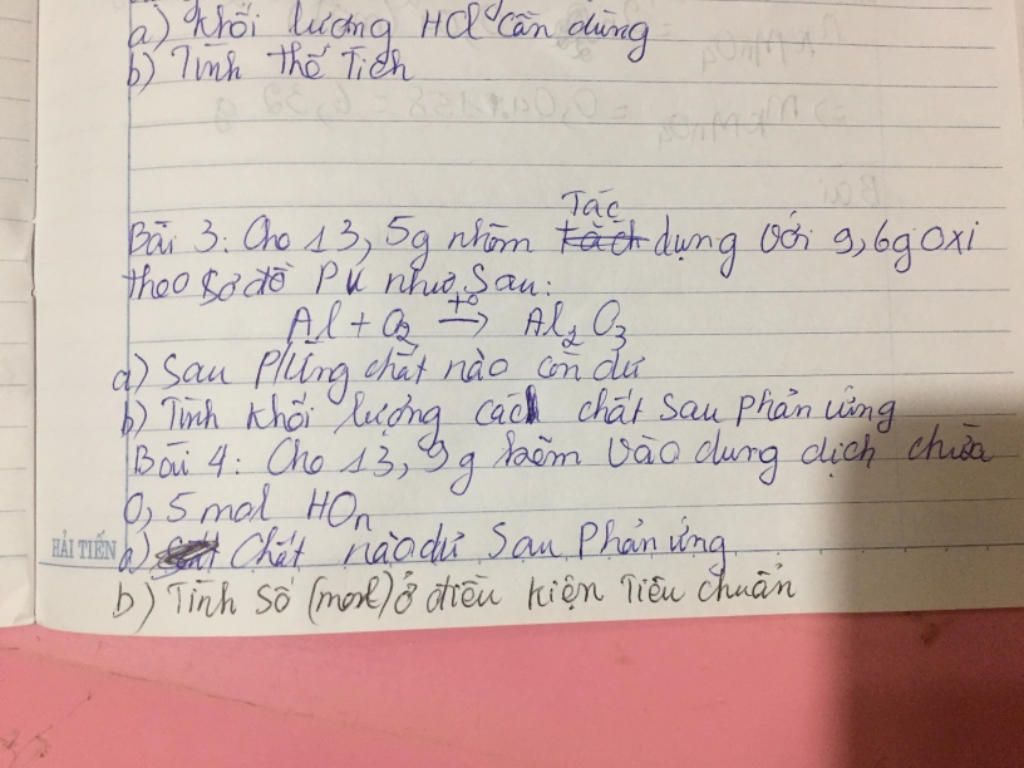 a) Khối lượng HCl cần dùng
b) Tính thể Tích
Bài 3: Cho 13,5g nhôm Tác dụng với 9,6g oxi
theo sơ đồ PƯ như Sau:
Al + O₂ →(t°) Al₂O₃
a) Sau P/Ứng chất nào còn dư
b) Tính khối lượng các chất sau phản ứng
Bài 4: Cho 13,9g kẽm Vào dung dịch chứa
0,5 mol
HẢI TIẾN a) Chất nào dư Sau Phản ứng
b) Tính Số (mol) ở điều kiện Tiêu chuẩn